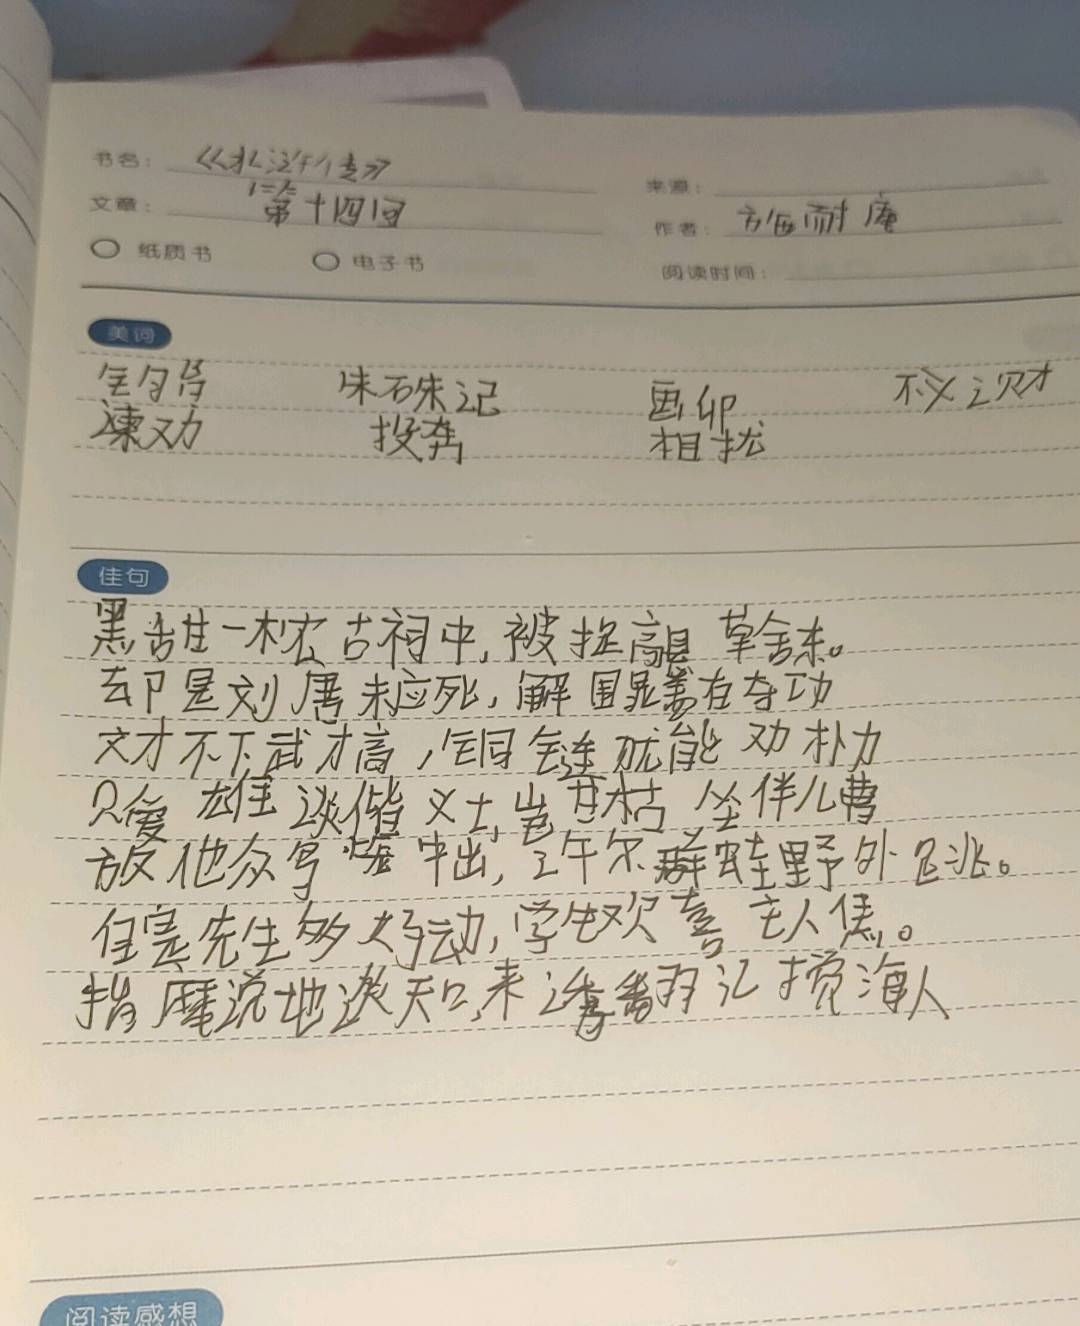 书名： 《水浒传》
来源：
文章： 第十四回
作者： 施耐庵
纸质书 电子书
阅读时间：
美词
朱砂记 画卯 不义之财
谏劝 投奔 相扰
佳句
黑甜一枕古祠中，被捉高悬草舍东。
却是刘唐未应死，解围晁盖有奇功
文才不下武才高，铜链犹能劝朴刀
只爱雄谈偕义士，岂甘枯坐伴儿曹
放他众鸟笼中出，野外逃。
先生多好动，学生欢喜主人焦。
指麾说地谈天口，来海人
阅读感想